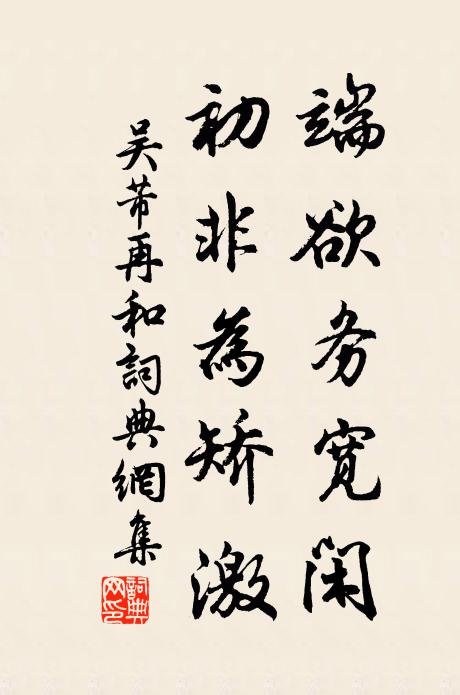 端欲务宽闲
初非為矫激
吴芾再和詞典網集
詞典网印